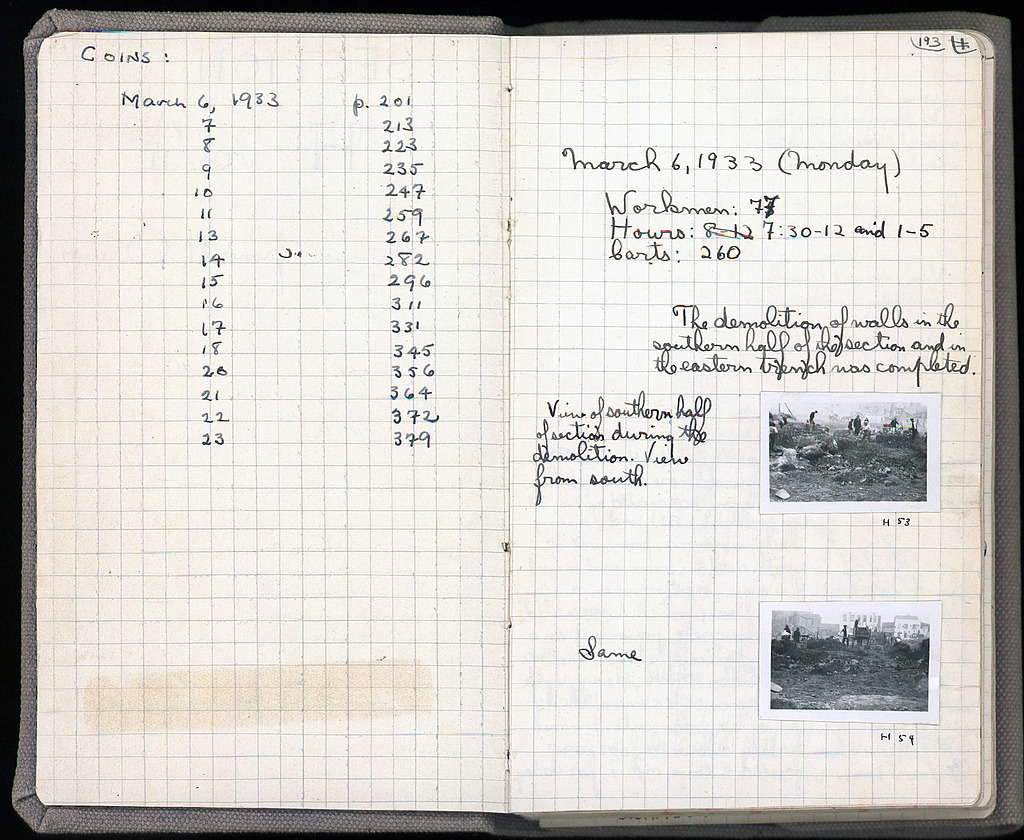 COINS:
March 6, 1933 p. 201
7 213
8 223
9 235
10 247
11 259
13 267
14 282
15 296
16 311
17 331
18 345
20 356
21 364
22 372
23 379
193 H
March 6, 1933 (Monday)
Workmen: 77
Hours: 8-12 7:30-12 and 1-5
Carts: 260
The demolition of walls in the
southern half of the section and in
the eastern trench was completed.
View of southern half
of section during the
demolition. View
from south.
H 53
Same
H 54